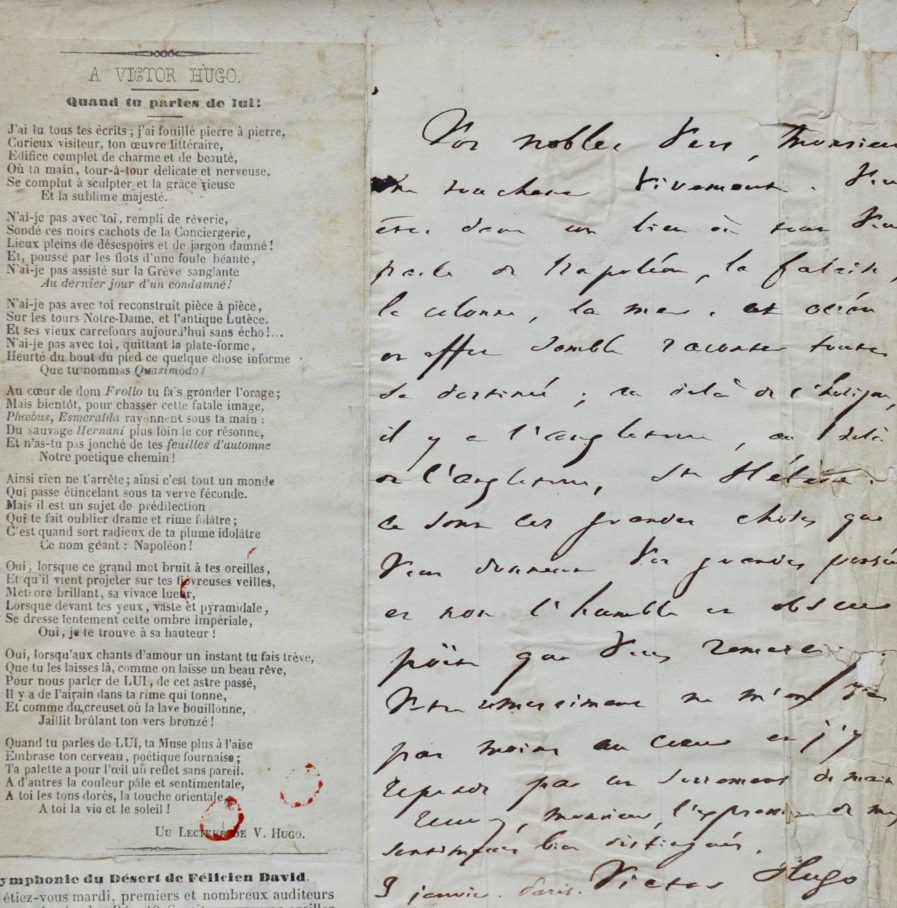 A VICTOR HUGO.
Quand tu parles de lui!
J'ai lu tous tes écrits ; j'ai fouillé pierre à pierre,
Curieux visiteur, ton œuvre littéraire,
Edifice complet de charme et de beauté,
Où ta main, tour-à-tour délicate et nerveuse,
Se complut à sculpter et la grâce rieuse
Et la sublime majesté.
N'ai-je pas avec toi, rempli de rêverie,
Sondé ces noirs cachots de la Conciergerie,
Lieux pleins de désespoirs et de jargon damné !
Et, poussé par les flots d'une foule béante,
N'ai-je pas assisté sur la Grève sanglante
Au dernier jour d'un condamné!
N'ai-je pas avec toi reconstruit pièce à pièce,
Sur les tours Notre-Dame, et l'antique Lutèce,
Et ses vieux carrefours aujourd'hui sans écho !...
N'ai-je pas avec toi, quittant la plate-forme,
Heurté du bout du pied ce quelque chose informe
Que tu nommas Quasimodo !
Au cœur de dom Frollo tu fais gronder l'orage ;
Mais bientôt, pour chasser cette fatale image,
Phœbus, Esmeralda rayonnent sous ta main :
Du sauvage Hernani plus loin le cor résonne,
Et n'as-tu pas jonché de tes feuilles d'automne
Notre poétique chemin !
Ainsi rien ne t'arrête ; ainsi c'est tout un monde
Qui passe étincelant sous ta verve féconde.
Mais il est un sujet de prédilection
Qui te fait oublier drame et rime folâtre ;
C'est quand sort radieux de ta plume idolâtre
Ce nom géant : Napoléon !
Oui, lorsque ce grand mot bruit à tes oreilles,
Et qu'il vient projeter sur tes fiévreuses veilles,
Météore brillant, sa vivace lueur,
Lorsque devant tes yeux, vaste et pyramidale,
Se dresse lentement cette ombre impériale,
Oui, je te trouve à sa hauteur !
Oui, lorsqu'aux chants d'amour un instant tu fais trève,
Que tu les laisses là, comme on laisse un beau rêve,
Pour nous parler de LUI, de cet astre passé,
Il y a de l'airain dans ta rime qui tonne,
Et comme du creuset où la lave bouillonne,
Jaillit brûlant ton vers bronzé !
Quand tu parles de LUI, ta Muse plus à l'aise
Embrase ton cerveau, poétique fournaise ;
Ta palette a pour l'œil un reflet sans pareil.
A d'autres la couleur pâle et sentimentale,
A toi les tons dorés, la touche orientale,
A toi la vie et le soleil !
Un Lecteur de V. Hugo.
ymphonie du Désert de Félicien David.
étiez-vous mardi, premiers et nombreux auditeurs
Vos nobles vers, Monsieur
me touchent vivement. Vous
êtes dans un lieu où tout vous
parle de Napoléon, la falaise,
la colonne, la mer. et océan
en effet semble raconter toute
sa destinée ; au delà de l'horizon,
il y a l'angleterre, au delà
de l'angleterre, Ste Hélène.
ce sont ces grandes choses qui
vous donnent vos grandes pensées
et non l'humble et obscur
poëte que vous remerciez.
Votre remerciment ne m'en va
pas moins au cœur et j'y
réponds par un serrement de main
Recevez, monsieur, l'expression de mes
sentiments bien distingués.
3 janvier. Paris. Victor Hugo